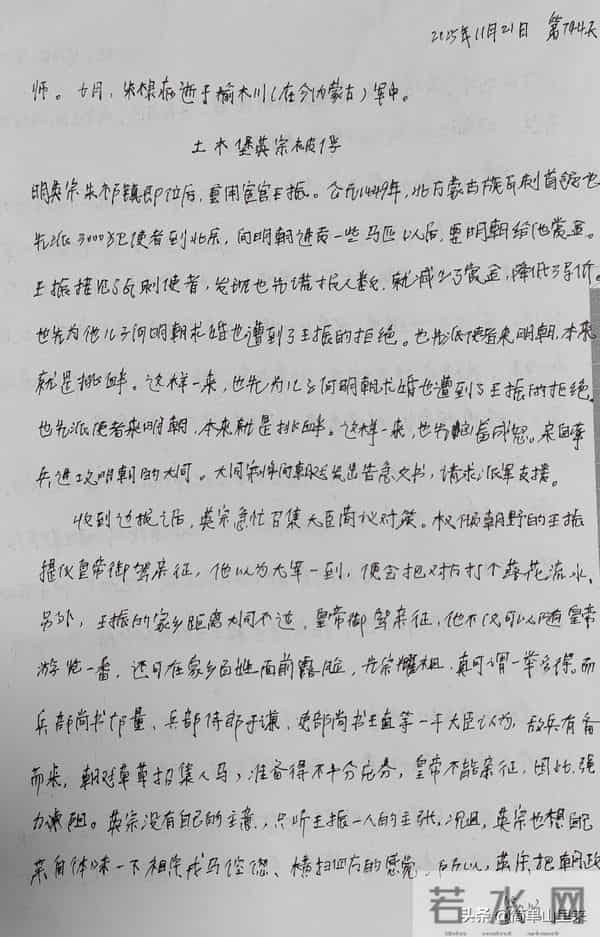 2025年11月21日 第794天
师。七月，朱棣病逝于榆木川(在今内蒙古)军中。
土木堡英宗被俘
明英宗朱祁镇即位后，重用宦官王振。公元1449年，北方蒙古族瓦剌首领也
先派3000名使者到北京，向明朝进贡一些马匹以后，要明朝给他赏金。
王振接见瓦剌使者，发现也先谎报人数，就减少了赏金，降低了马价。
也先为他儿子向明朝求婚也遭到了王振的拒绝。也先派使者来明朝，本来
就是挑衅。这样一来，也先为儿子向明朝求婚也遭到了王振的拒绝。
也先派使者来明朝，本来就是挑衅。这样一来，也先恼羞成怒。亲自率
兵进攻明朝的大同。大同和向朝廷发出告急文书，请求派军支援。
收到边报之后，英宗急忙召集大臣商议对策。权倾朝野的王振
提仪皇帝御驾亲征，他以为大军一到，便会把对方打个落花流水。
另外，王振的家乡距离大同不远，皇帝御驾亲征，他不仅可以随皇帝
游览一番，还可在家乡百姓面前露脸，光宗耀祖，真可谓一举六得。而
兵部尚书邝量、兵部侍郎于谦、吏部尚书王直等一干大臣认为，敌兵有备
而来，朝廷草草招集人马，准备得不十分充分，皇帝不能亲征，因此，强
力谏阻。英宗没有自己的主意，只听王振一人的主张。况且，英宗也想
亲自体味一下祖先戎马倥偬、横扫四方的感觉，所以，英宗把朝政
若水网
头条@简单山里来